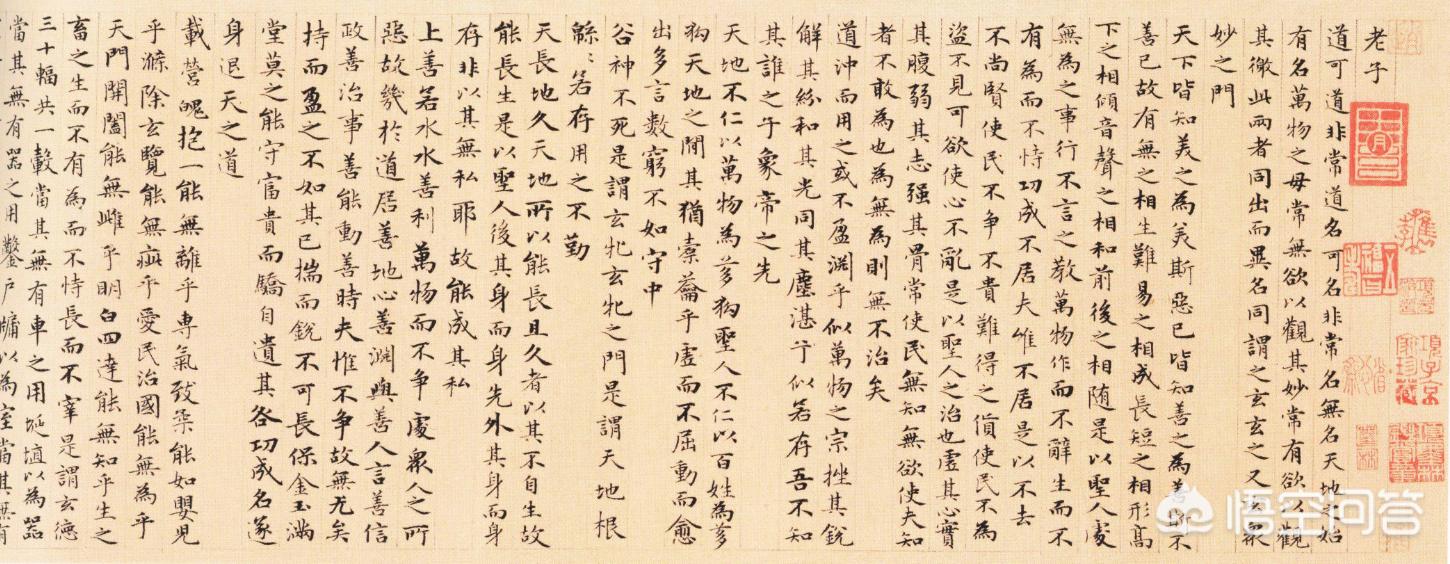 老子
道可道非常道名可名非常名無名天地之始
有名萬物之母常無欲以觀其妙常有欲以觀
其徼此兩者同出而異名同謂之玄玄之又玄衆
妙之門
天下皆知美之為美斯惡已皆知善之為善斯不
善已故有無之相生難易之相成長短之相形高
下之相傾音聲之相和前後之相随是以聖人處
無為之事行不言之教萬物作而不辭生而不
有為而不恃功成不居夫惟不居是以不去
不尚賢使民不争不貴難得之貨使民不為
盗不見可欲使心不亂是以聖人之治也虛其心實
其腹弱其志强其骨常使民無知無欲使夫知
者不敢為也為無為則無不治矣
道沖而用之或不盈淵乎似萬物之宗挫其銳
解其紛和其光同其塵湛乎似若存吾不知
其誰之子象帝之先
天地不仁以萬物為芻狗聖人不仁以百姓為芻
狗天地之間其猶橐籥乎虛而不屈動而愈
出多言數窮不如守中
谷神不死是謂玄牝玄牝之門是謂天地根
緜〻若存用之不勤
天長地久天地所以能長且久者以其不自生故
能長生是以聖人後其身而身先外其身而身
存非以其無私耶故能成其私
上善若水水善利萬物而不争處衆人之所
惡故幾於道居善地心善淵與善人言善信
政善治事善能動善時夫惟不争故無尤矣
持而盈之不如其已揣而銳不可長保金玉滿
堂莫之能守富貴而驕自遺其咎功成名遂
身退天之道
載營魄抱一能無離乎專氣致柔能如嬰兒
乎滌除玄覽能無疵乎愛民治國能無為乎
天門開闔能無雌乎明白四達能無知乎生之
畜之生而不有為而不恃長而不宰是謂玄德
三十輻共一轂當其無有車之用埏埴以為器
當其無有器之用鑿戶牖以為室當其無有
項子京家珍藏
悟空问答